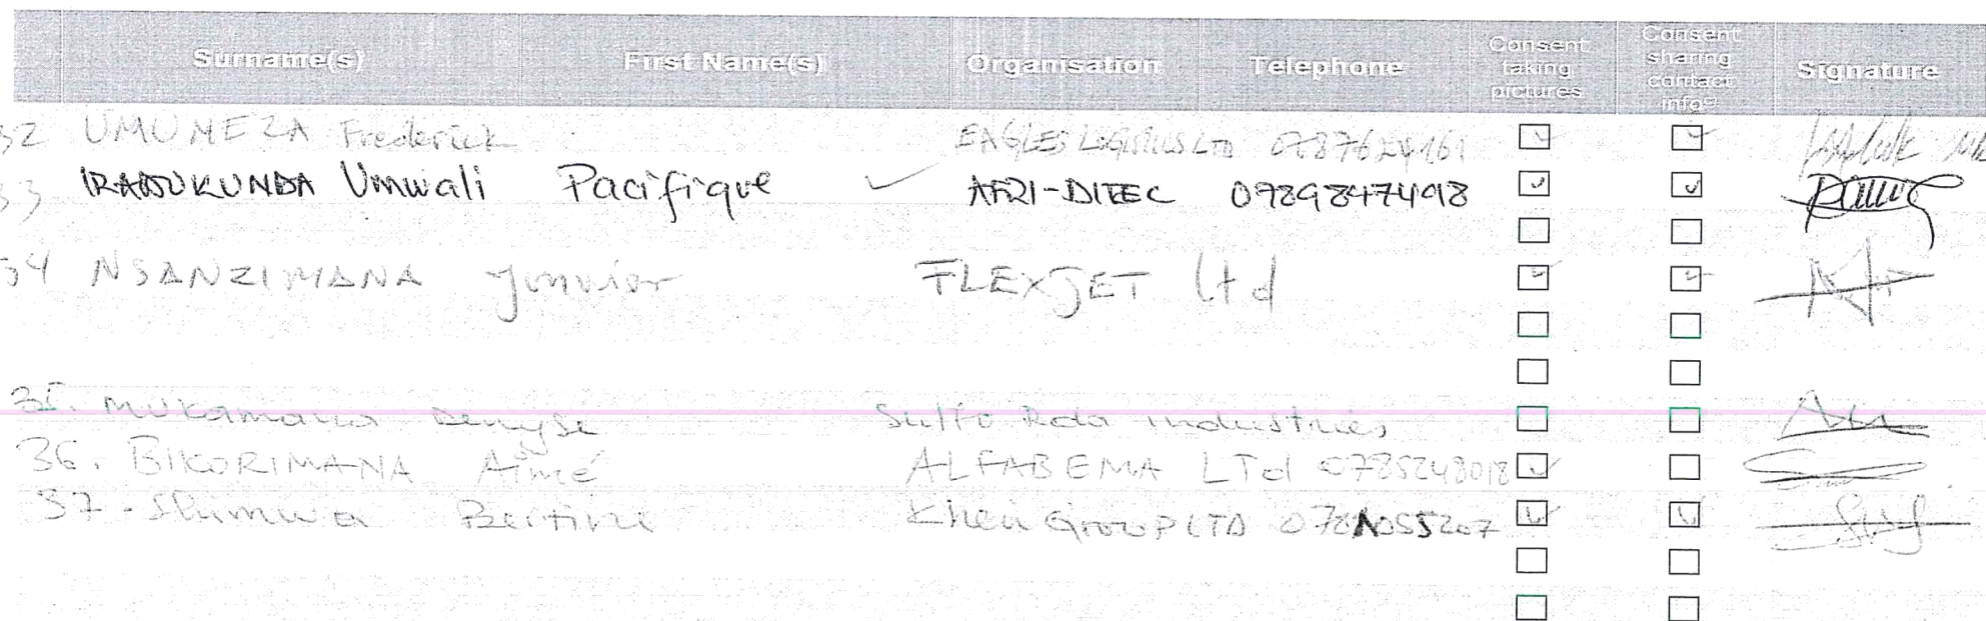 Surname(s) First Name(s) Organisation Telephone Consent taking pictures Consent sharing contact info Signature
32 UMUNEZA Frederick EAGLES LOGISTICS LTD 0787624161
33 IRADUKUNDA Umwali Pacifique AFRI-DITEC 0789847498
34 NSANZIMANA Janvier FLEXJET Ltd
35. Mukamana Denyse Sulfo Rda industries
36. BIKORIMANA Aimé ALFABEMA LTd 0785248018
37. Shimwa Bertine Khen Group LTD